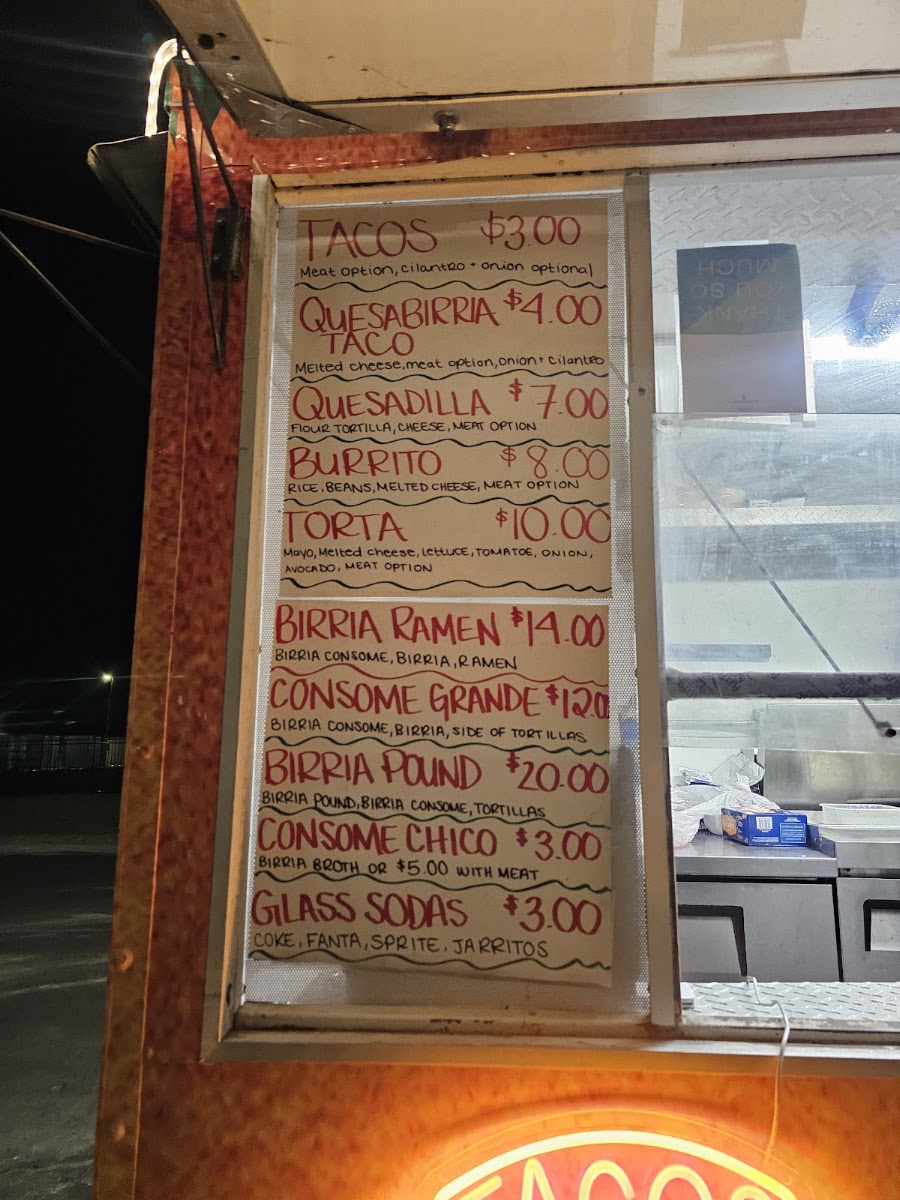 TACOS $3.00
Meat option, cilantro + onion optional
QUESABIRRIA $4.00
TACO
Melted cheese, meat option, onion + cilantro
QUESADILLA $7.00
FLOUR TORTILLA, CHEESE, MEAT OPTION
BURRITO $8.00
RICE, BEANS, MELTED CHEESE, MEAT OPTION
TORTA $10.00
Mayo, Melted cheese, lettuce, TOMATOE, ONION,
AVOCADO, MEAT OPTION
BIRRIA RAMEN $14.00
BIRRIA CONSOME, BIRRIA, RAMEN
CONSOME GRANDE $12.0
BIRRIA CONSOME, BIRRIA, SIDE OF TORTILLAS
BIRRIA POUND $20.00
BIRRIA POUND, BIRRIA CONSOME, TORTILLAS
CONSOME CHICO $3.00
BIRRIA BROTH OR $5.00 WITH MEAT
GLASS SODAS $3.00
COKE, FANTA, SPRITE, JARRITOS
THANK
YOU SO
MUCH
TACOS